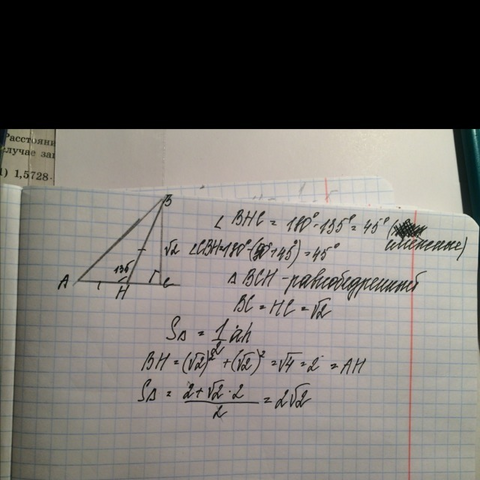 Расстояни
случае за
1) 1,5728-
B
√2
A
135
H
C
∠ BHC = 180° - 135° = 45° (
смежные)
∠CBH=180°-(90°+45°) = 45°
△ BCH - равнобедренный
BC = HC = √2
S△ = 1/2 ah
BH = (√2)² + (√2)² = √4 = 2 = AH
S△ = 2+√2·2/2 = 2√2